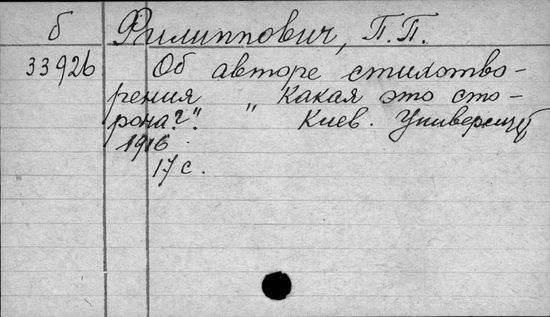 б Филиппович, П.П.
33926 Об авторе стихотво-
рения " Какая это сто-
рона?". Киев. Университ
1916.
17 с.